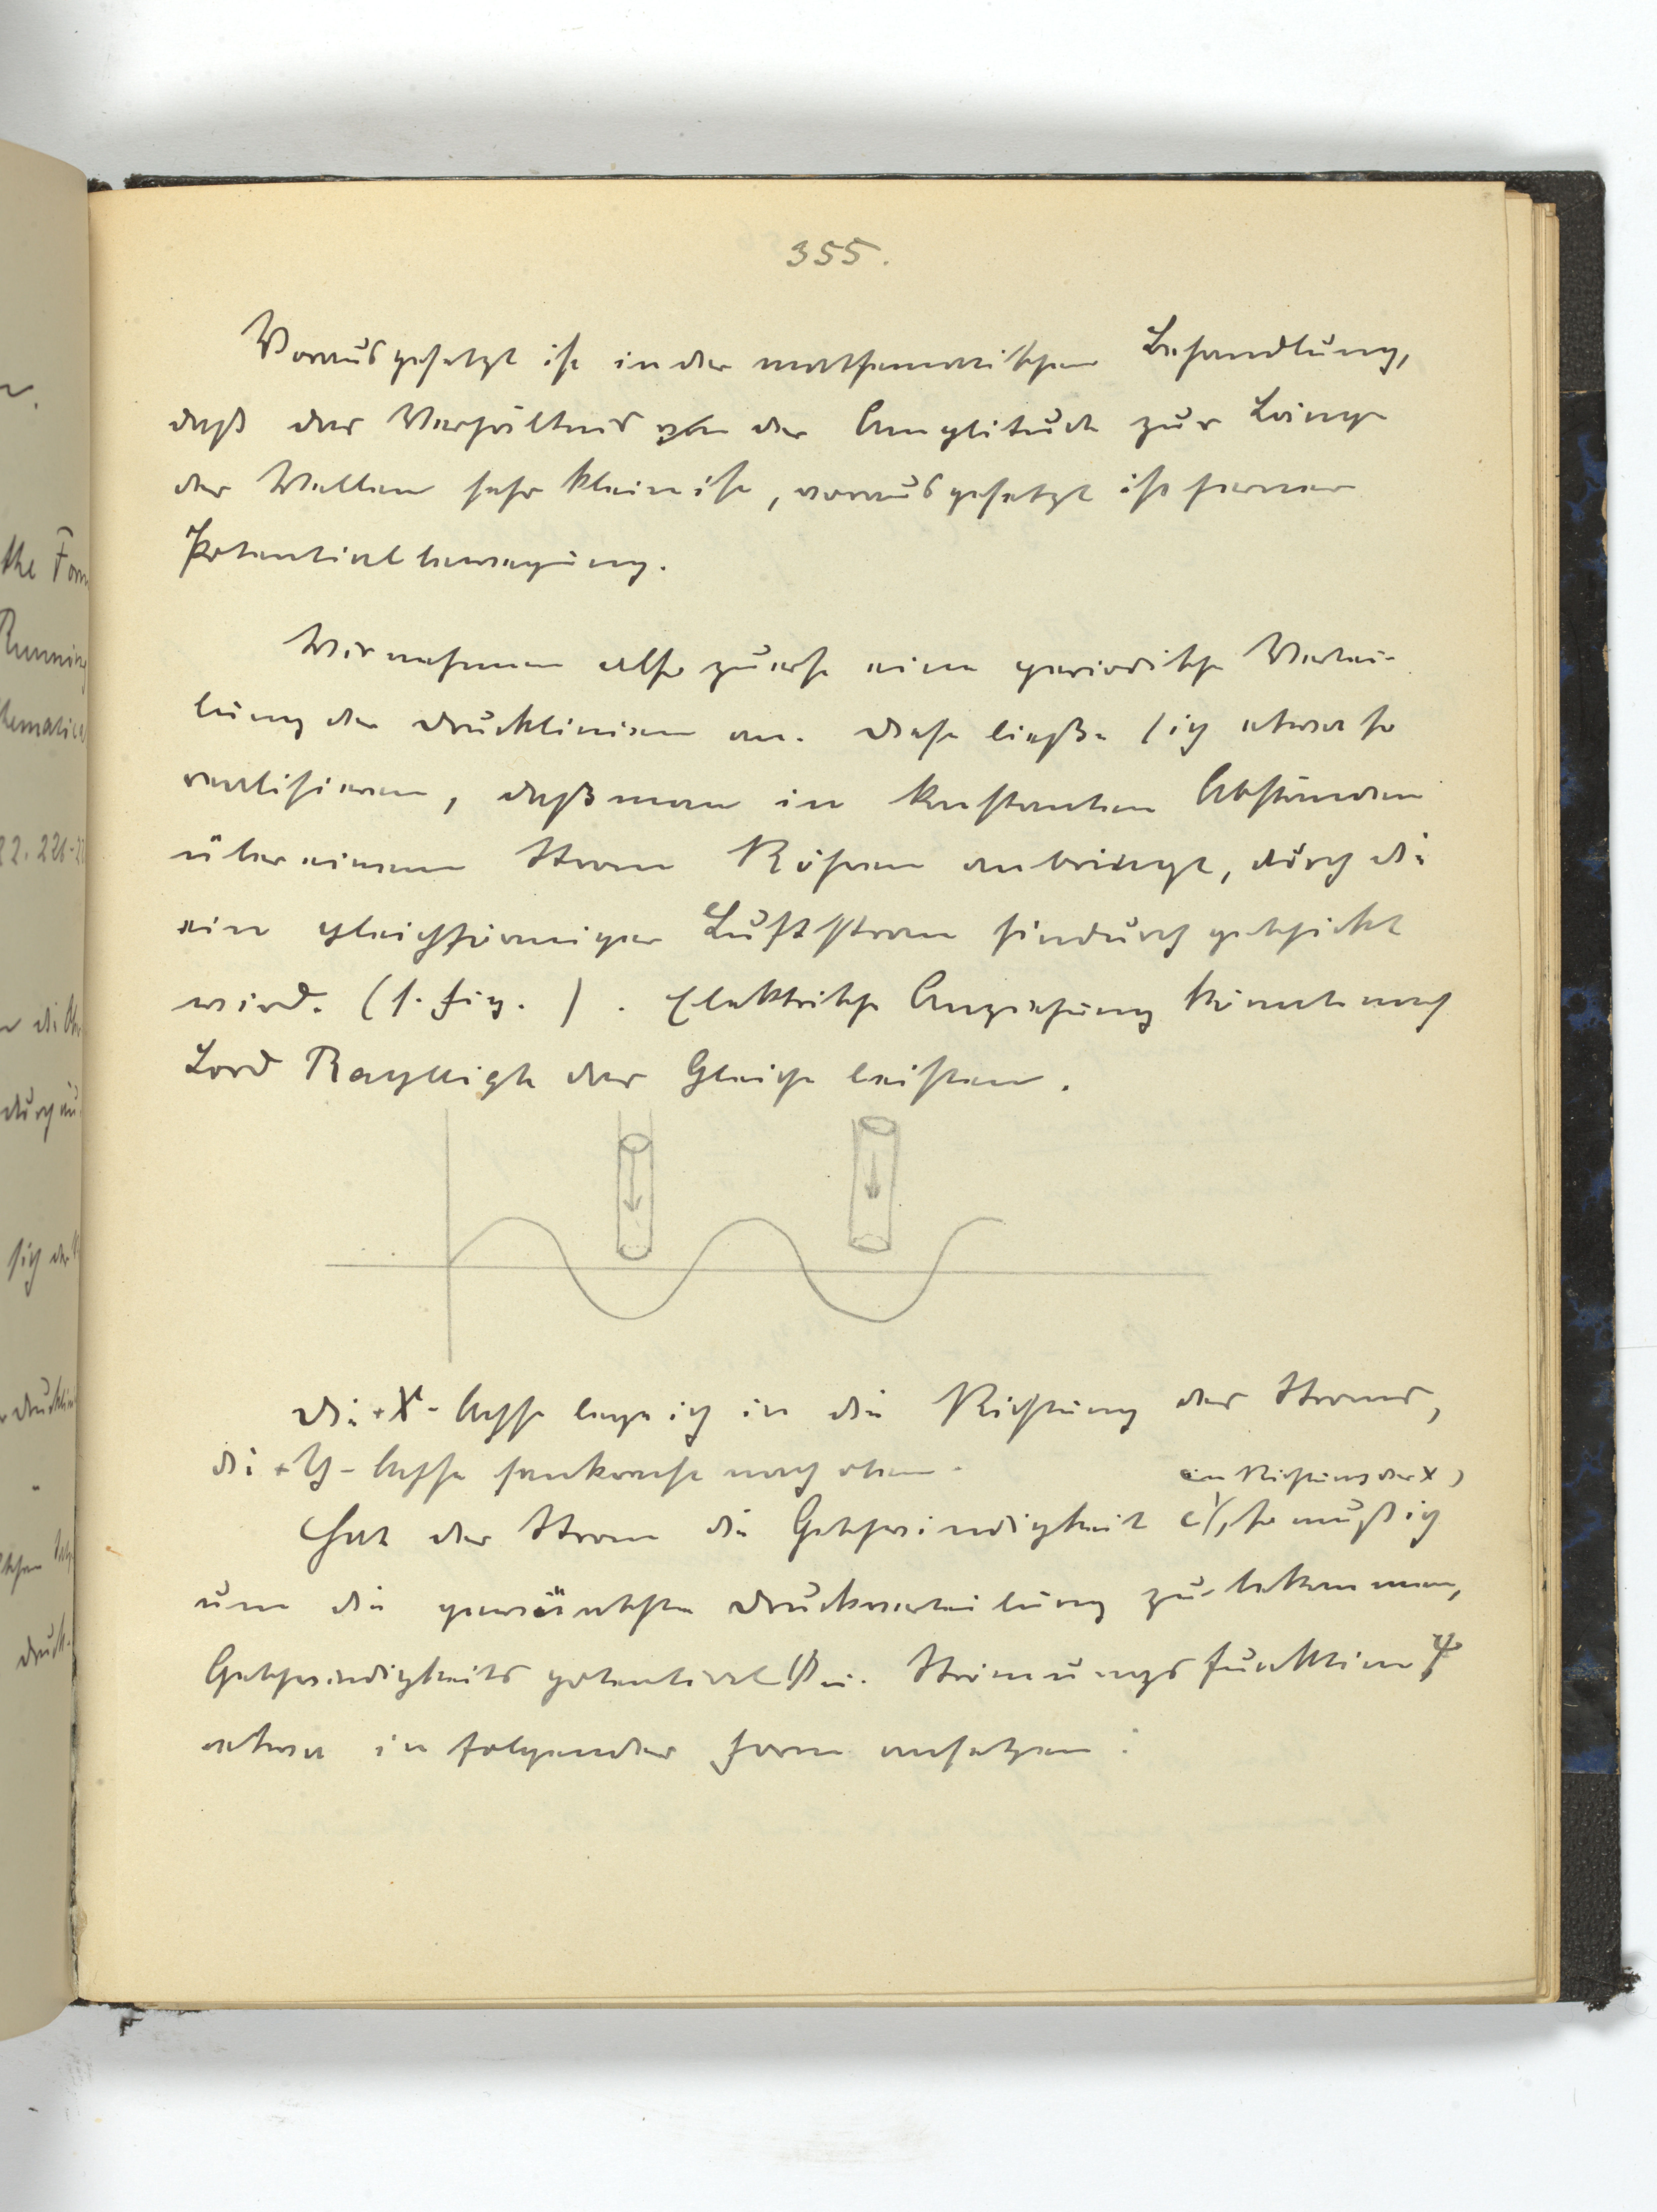 355.
Vorausgesetzt ist in der mathematischen Behandlung,
daß das Verhältnis der Amplitude zur Länge
der Wellen sehr klein ist, vorausgesetzt ist ferner
Potentialbewegung.
Wir nehmen also zuerst eine periodische Vertei-
lung der Drucklinien an. Diese ließe sich etwa so
realisieren, daß man in konstanten Abständen
über einem Strom Röhren anbringt, durch die
ein gleichförmiger Luftstrom hindurchgeschickt
wird. (s. Fig. ). Elektrische Anziehung könnte nach
Lord Rayleigh das Gleiche leisten.
Die +X-Achse lege ich in die Richtung des Stroms,
die +Y-Achse senkrecht nach oben.
in Richtung der X
Hat der Strom die Geschwindigkeit c, so muß ich
um die gewünschte Druckverteilung zu bekommen,
Geschwindigkeitspotential Φ u. Strömungsfunktion Ψ
etwa in folgender Form ansetzen:
the Form
Running
22. 226-22
sich der
durch
Druck-